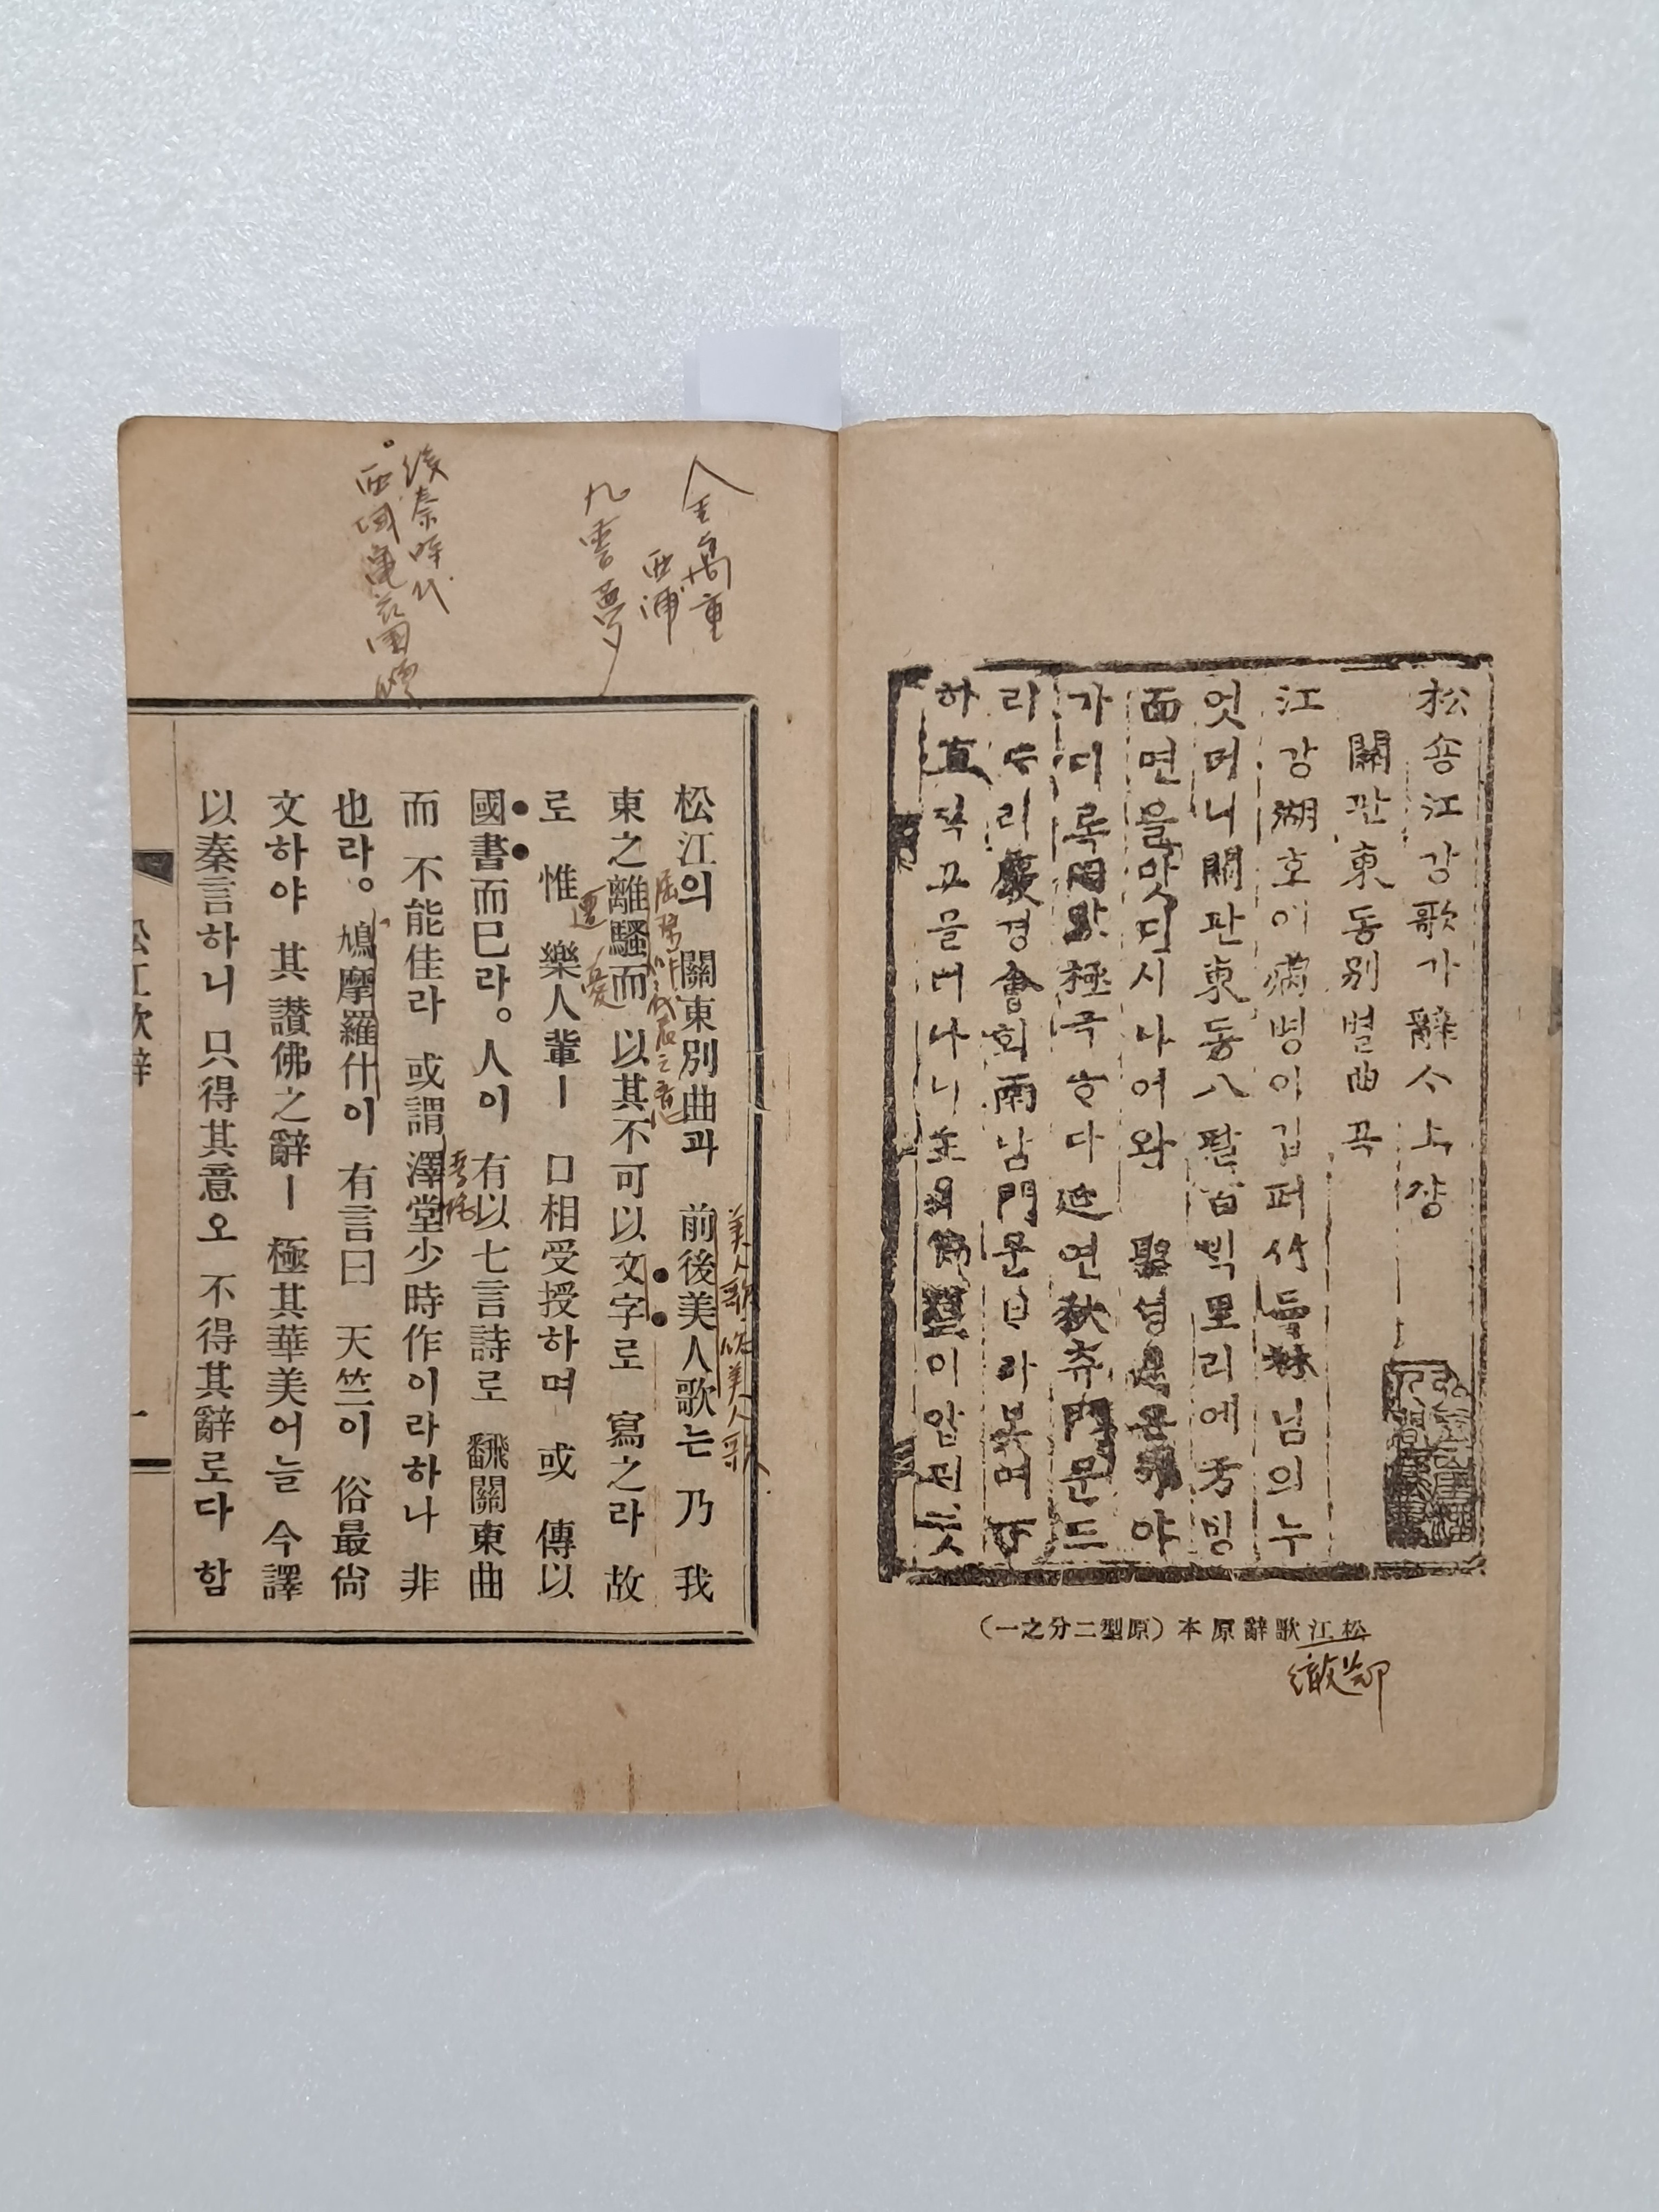 松숑江강歌가辭ᄉ上샹
關관東동別별曲곡
江강湖호애病병이깁퍼竹듁林님의누
엇더니關관東동八팔百ᄇᆡᆨ里리에方방
面면을맛디시나어와聖셩恩은이야
가디록罔망極극ᄒᆞ다延연秋츄門문드
리ᄃᆞ라慶경會회南남門문ᄇᆞ라보며下
하直직고믈너나니玉옥節졀이압ᄑᆡ셧
松江歌辭原本(原型二分之一)
鄭澈
金萬重
西浦
九雲夢
後秦時代
西域龜茲国
松江의 關東別曲과 前後美人歌는 乃 我
美人歌 美人歌
東之離騷而 以其不可以文字로 寫之라 故
屈原
憂
로 惟 樂人輩ㅣ 口相受授하며 或 傳以
國書而已라。人이 有以七言詩로 飜關東曲
而 不能佳라 或謂 澤堂少時作이라하나 非
李植
也라。鳩摩羅什이 有言曰 天竺이 俗最尙
文하야 其讃佛之辭ㅣ 極其華美어늘 今譯
以秦言하니 只得其意오 不得其辭로다 함
松江歌辭
一